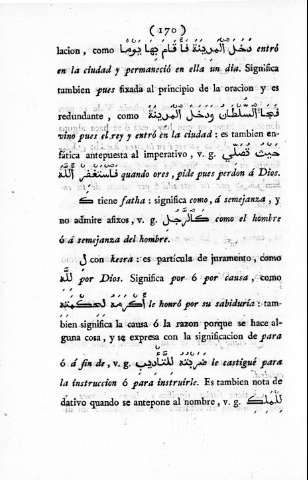 ( 170 )
lacion, como دَخَلَ ٱلْمَدِينَةَ فَأَقَامَ بِهَا يَوْمًا entró
en la ciudad y permaneció en ella un dia. Significa
tambien pues fixada al principio de la oracion y es
redundante, como فَجَا ٱلسُّلْطَانُ وَدَخَلَ ٱلْمَدِينَةَ
vino pues el rey y entró en la ciudad: es tambien en-
fática antepuesta al imperativo, v. g. حَيْثُ تُصَلِّي
فَٱسْتَغْفِرِ ٱللَّهَ quando ores, pide pues perdon á Dios.
كَ tiene fatha: significa como, á semejanza, y
no admite afixos, v. g. كَٱلرَّجُلِ como el hombre
ó á semejanza del hombre.
لِ con kesra: es partícula de juramento, como
لِلَّهِ por Dios. Significa por ó por causa, como
أَكْرَمَهُ لِحِكْمَتِهِ le honró por su sabiduría: tam-
bien significa la causa ó la razon porque se hace al-
guna cosa, y se expresa con la significacion de para
ó á fin de, v. g. ضَرَبْتُهُ لِلتَّأْدِيبِ le castigué para
la instruccion ó para instruirle. Es tambien nota de
dativo quando se antepone al nombre, v. g. لِلْمَلِكِ